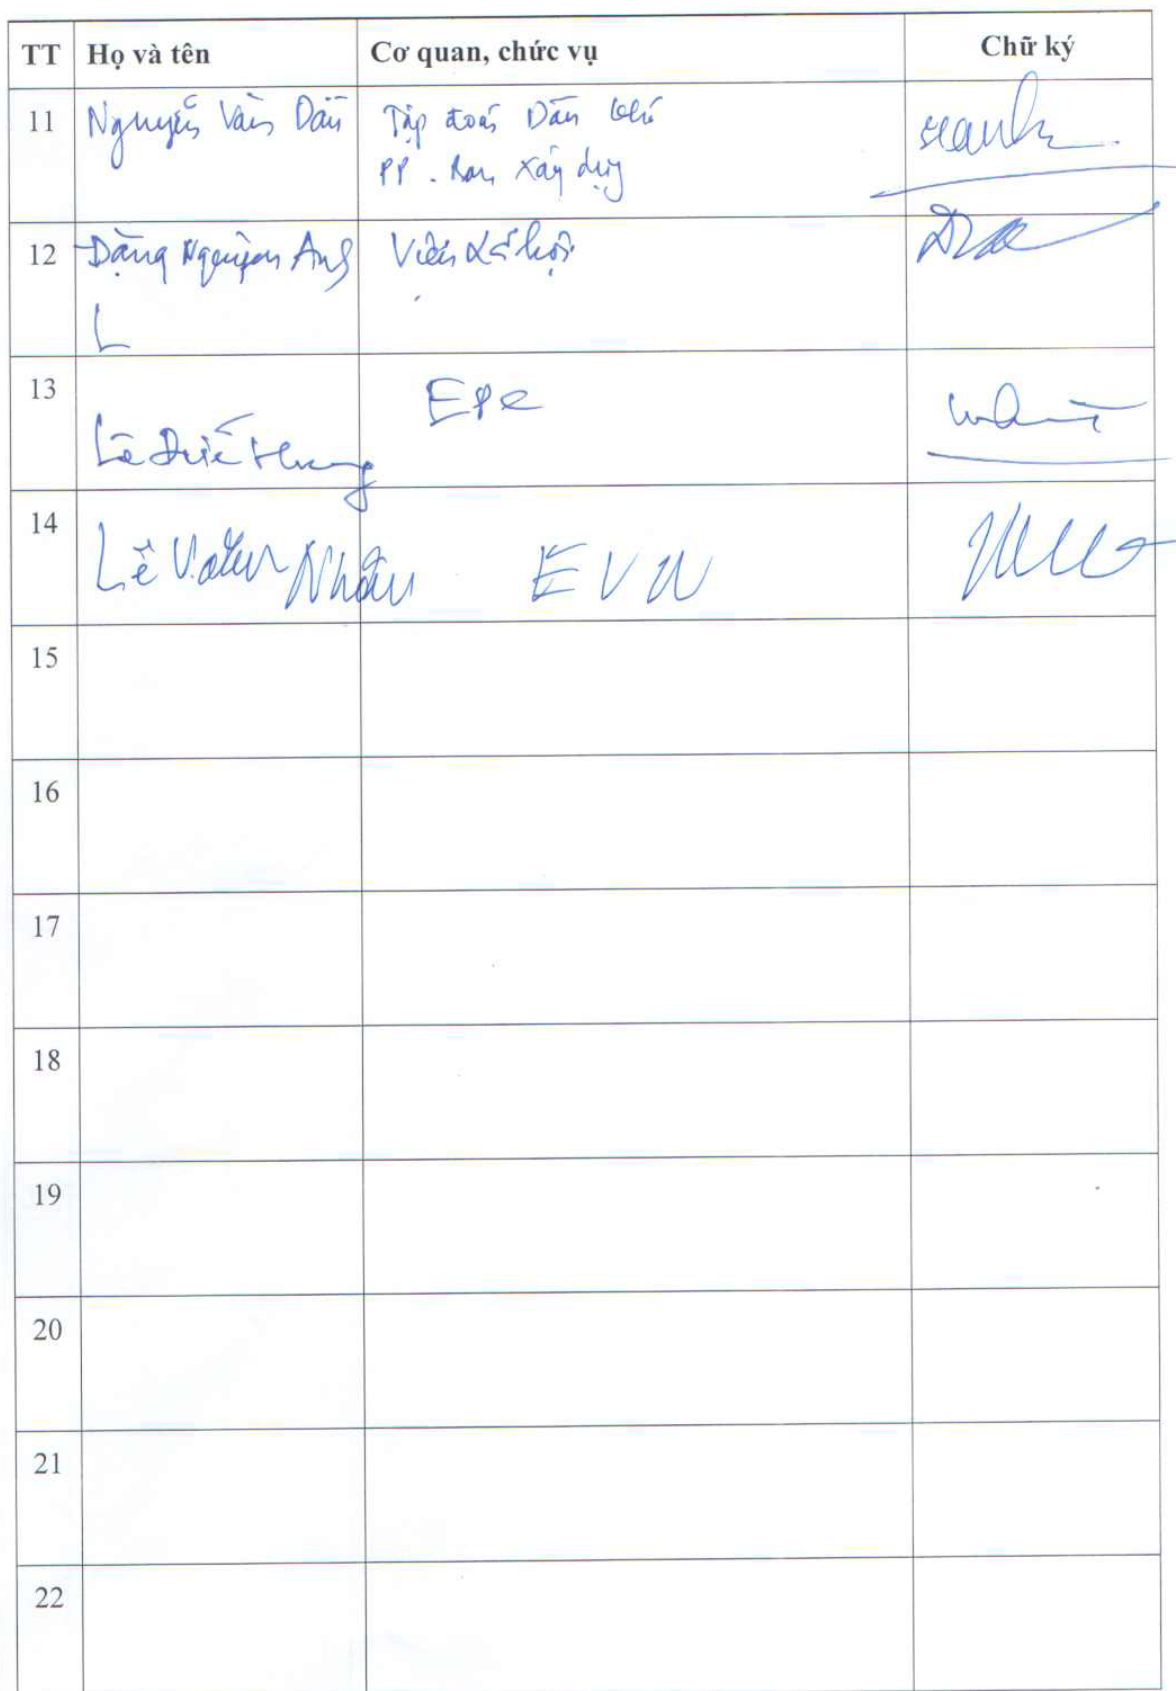 TT Họ và tên Cơ quan, chức vụ Chữ ký
11 Nguyễn Văn Dầu Tập đoàn Dầu khí
PP. Ban Xây dựng
12 Đặng Nguyên Anh Viện Xã hội
L
13 EPC
Lê
14 Lê Văn Nhân EVN
15
16
17
18
19
20
21
22